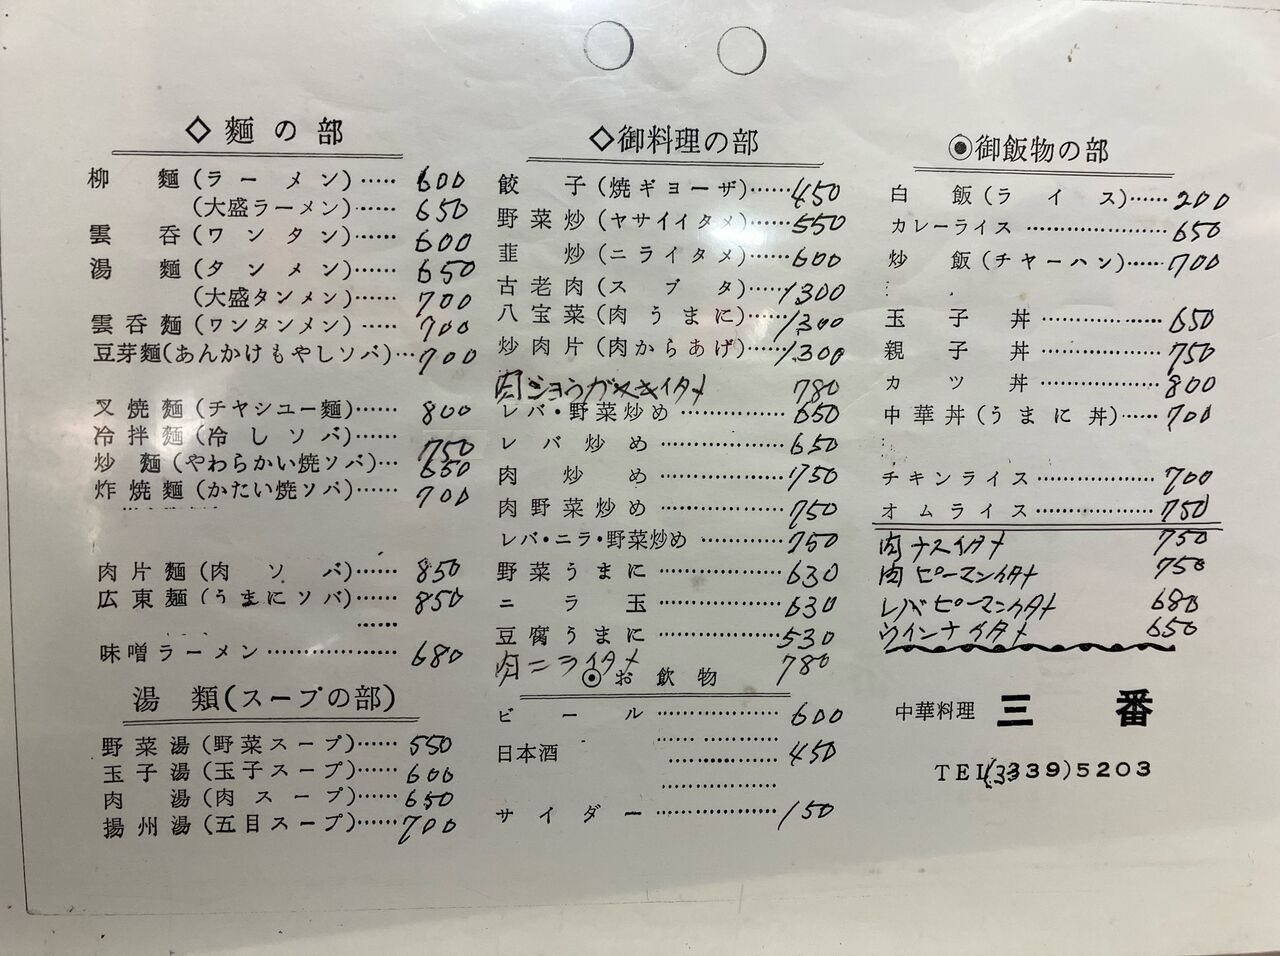 ◇麵の部
柳麵(ラーメン)…… 600
(大盛ラーメン)…… 650
雲呑(ワンタン)…… 600
湯麵(タンメン)…… 650
(大盛タンメン)…… 700
雲呑麵(ワンタンメン)…… 700
豆芽麵(あんかけもやしソバ)… 700
叉焼麵(チヤシユー麵)…… 800
冷拌麵(冷しソバ) 750
炒麵(やわらかい焼ソバ)… 650
炸焼麵(かたい焼ソバ)…… 700
肉片麵(肉ソバ)…… 850
広東麵(うまにソバ)…… 850
味噌ラーメン……………… 680
湯類(スープの部)
野菜湯(野菜スープ)…… 550
玉子湯(玉子スープ)…… 600
肉湯(肉スープ)…… 650
揚州湯(五目スープ)…… 700
◇御料理の部
餃子(焼ギヨーザ)…… 450
野菜炒(ヤサイイタメ)…… 550
韮炒(ニライタメ)…… 600
古老肉(スブタ)…… 1300
八宝菜(肉うまに)…… 1300
炒肉片(肉からあげ)…… 1300
肉ショウガヤキイタメ 780
レバ・野菜炒め……………… 650
レバ炒め……………… 650
肉炒め……………… 750
肉野菜炒め……………… 750
レバ・ニラ・野菜炒め………… 750
野菜うまに……………… 630
ニラ玉……………… 630
豆腐うまに……………… 530
肉ニライタメ 780
◉お飲物
ビール……………… 600
日本酒……………… 450
サイダー……………… 150
◉御飯物の部
白飯(ライス)…… 200
カレーライス……………… 650
炒飯(チャーハン)…… 700
玉子丼……………… 650
親子丼……………… 750
カツ丼……………… 800
中華丼(うまに丼)…… 700
チキンライス……………… 700
オムライス……………… 750
肉ナスイタメ 750
肉ピーマンイタメ 750
レバピーマンイタメ 680
ウインナイタメ 650
中華料理 三番
TEL(3339)5203